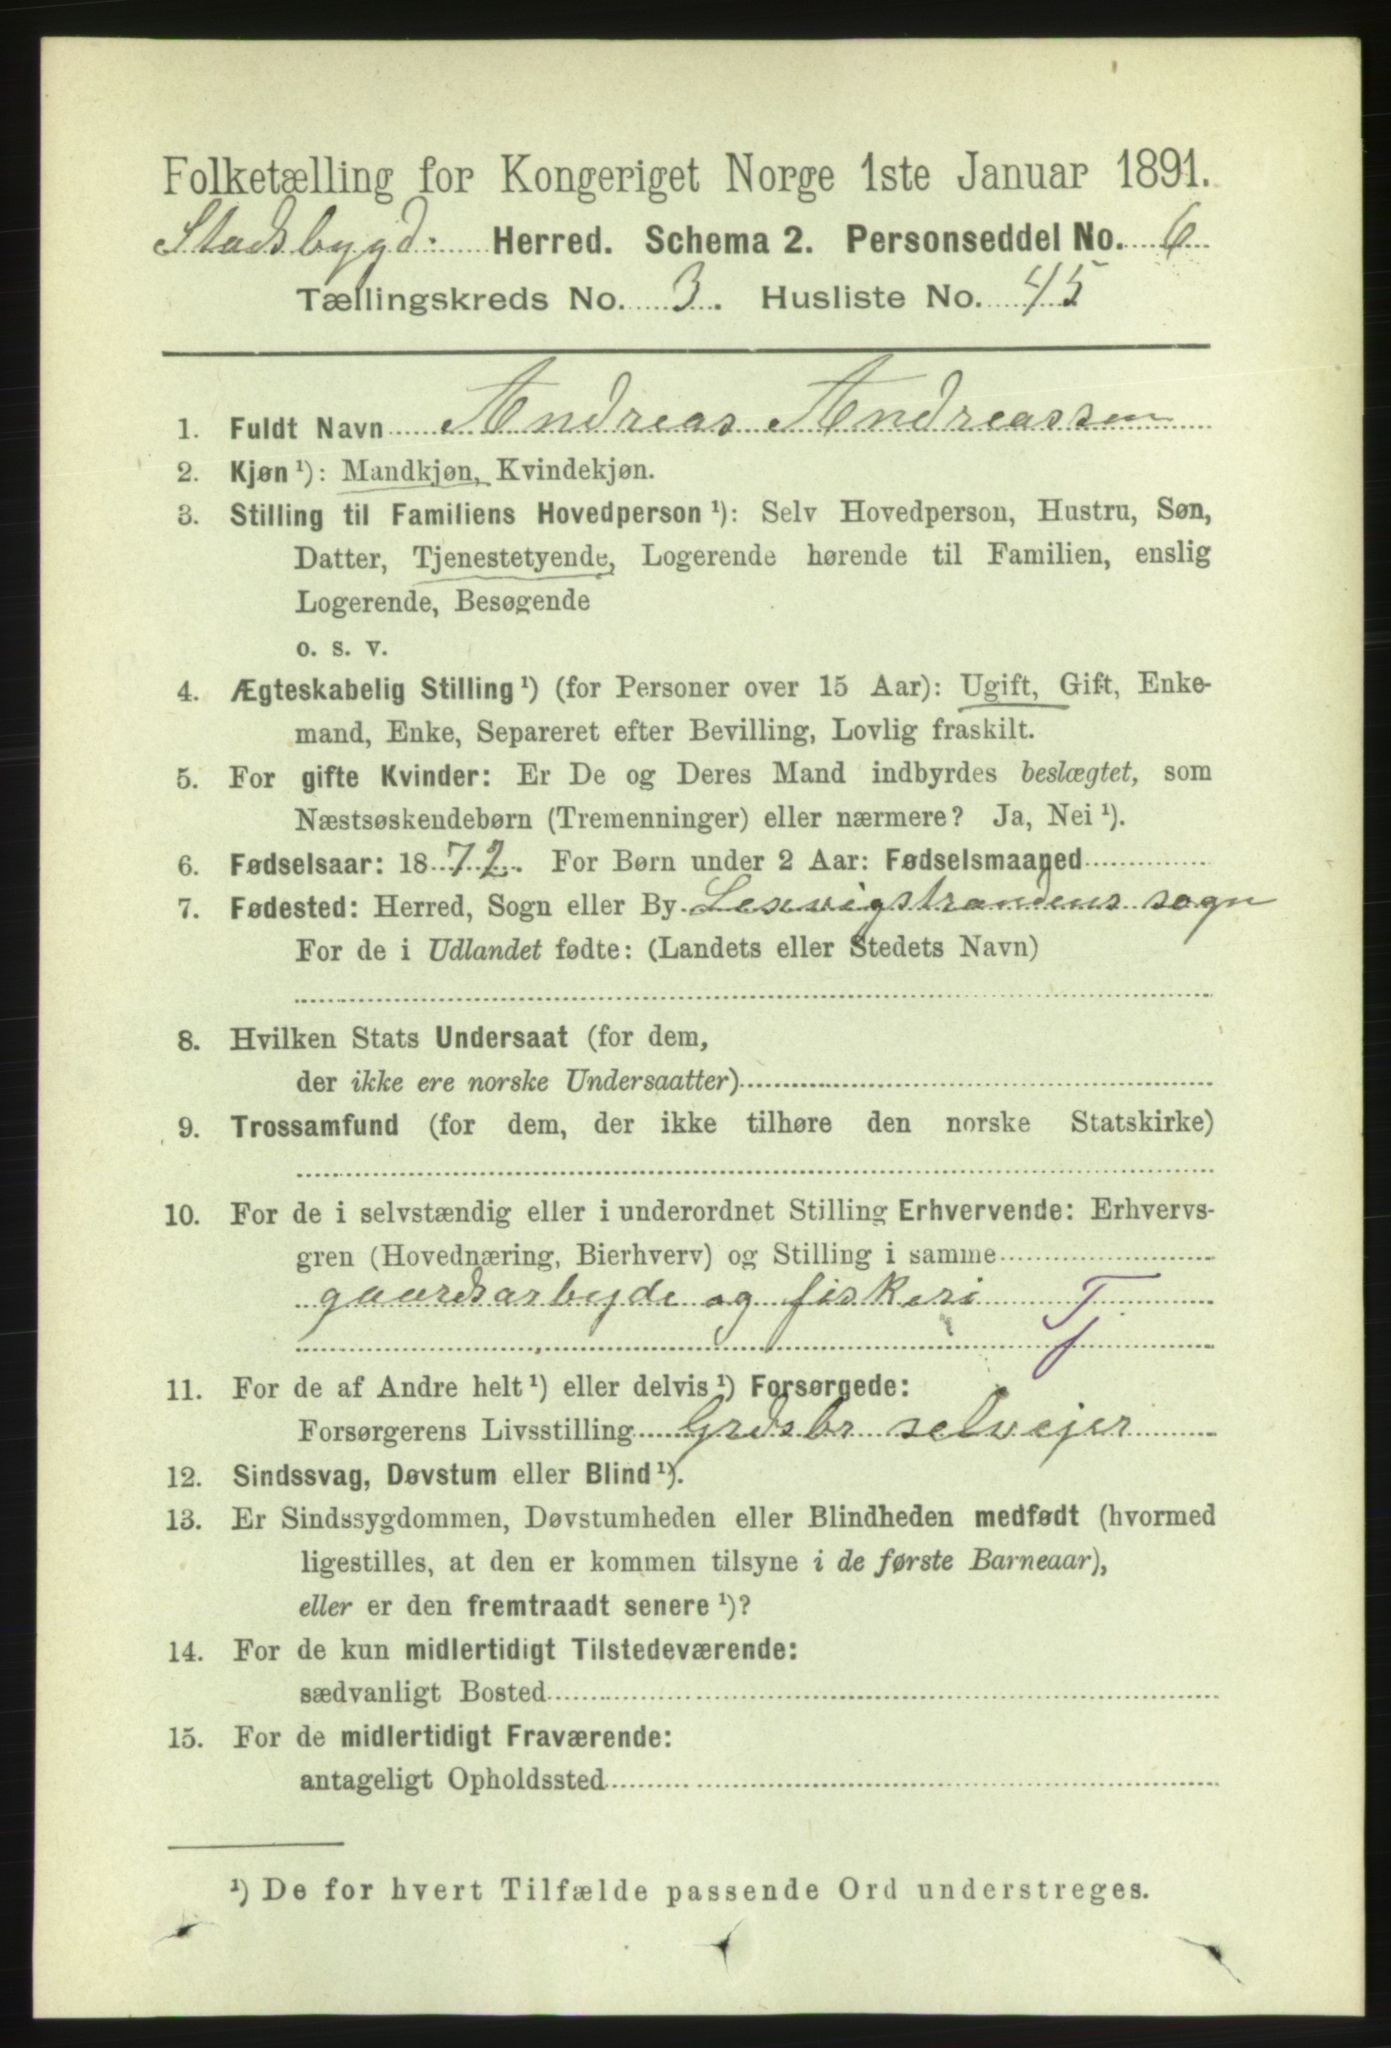 Folketælling for Kongeriget Norge 1ste Januar 1891.
Stadsbygd. Herred. Schema 2. Personseddel No. 6
Tællingskreds No. 3. Husliste No. 45
1. Fuldt Navn Andreas Andreassen
2. Kjøn ¹): Mandkjøn, Kvindekjøn.
3. Stilling til Familiens Hovedperson ¹): Selv Hovedperson, Hustru, Søn,
Datter, Tjenestetyende, Logerende hørende til Familien, enslig
Logerende, Besøgende
o. s. v.
4. Ægteskabelig Stilling ¹) (for Personer over 15 Aar): Ugift, Gift, Enke-
mand, Enke, Separeret efter Bevilling, Lovlig fraskilt.
5. For gifte Kvinder: Er De og Deres Mand indbyrdes beslægtet, som
Næstsøskendebørn (Tremenninger) eller nærmere? Ja, Nei ¹).
6. Fødselsaar: 1872. For Børn under 2 Aar: Fødselsmaaned
7. Fødested: Herred, Sogn eller By Lesvigstrandens sogn
For de i Udlandet fødte: (Landets eller Stedets Navn)
8. Hvilken Stats Undersaat (for dem,
der ikke ere norske Undersaatter)
9. Trossamfund (for dem, der ikke tilhøre den norske Statskirke)
10. For de i selvstændig eller i underordnet Stilling Erhvervende: Erhvervs-
gren (Hovednæring, Bierhverv) og Stilling i samme
gaardsarbejde og fiskeri T
11. For de af Andre helt ¹) eller delvis ¹) Forsørgede:
Forsørgerens Livsstilling Grdsbr selvejer
12. Sindssvag, Døvstum eller Blind ¹).
13. Er Sindssygdommen, Døvstumheden eller Blindheden medfødt (hvormed
ligestilles, at den er kommen tilsyne i de første Barneaar),
eller er den fremtraadt senere ¹)?
14. For de kun midlertidigt Tilstedeværende:
sædvanligt Bosted
15. For de midlertidigt Fraværende:
antageligt Opholdssted
¹) De for hvert Tilfælde passende Ord understreges.